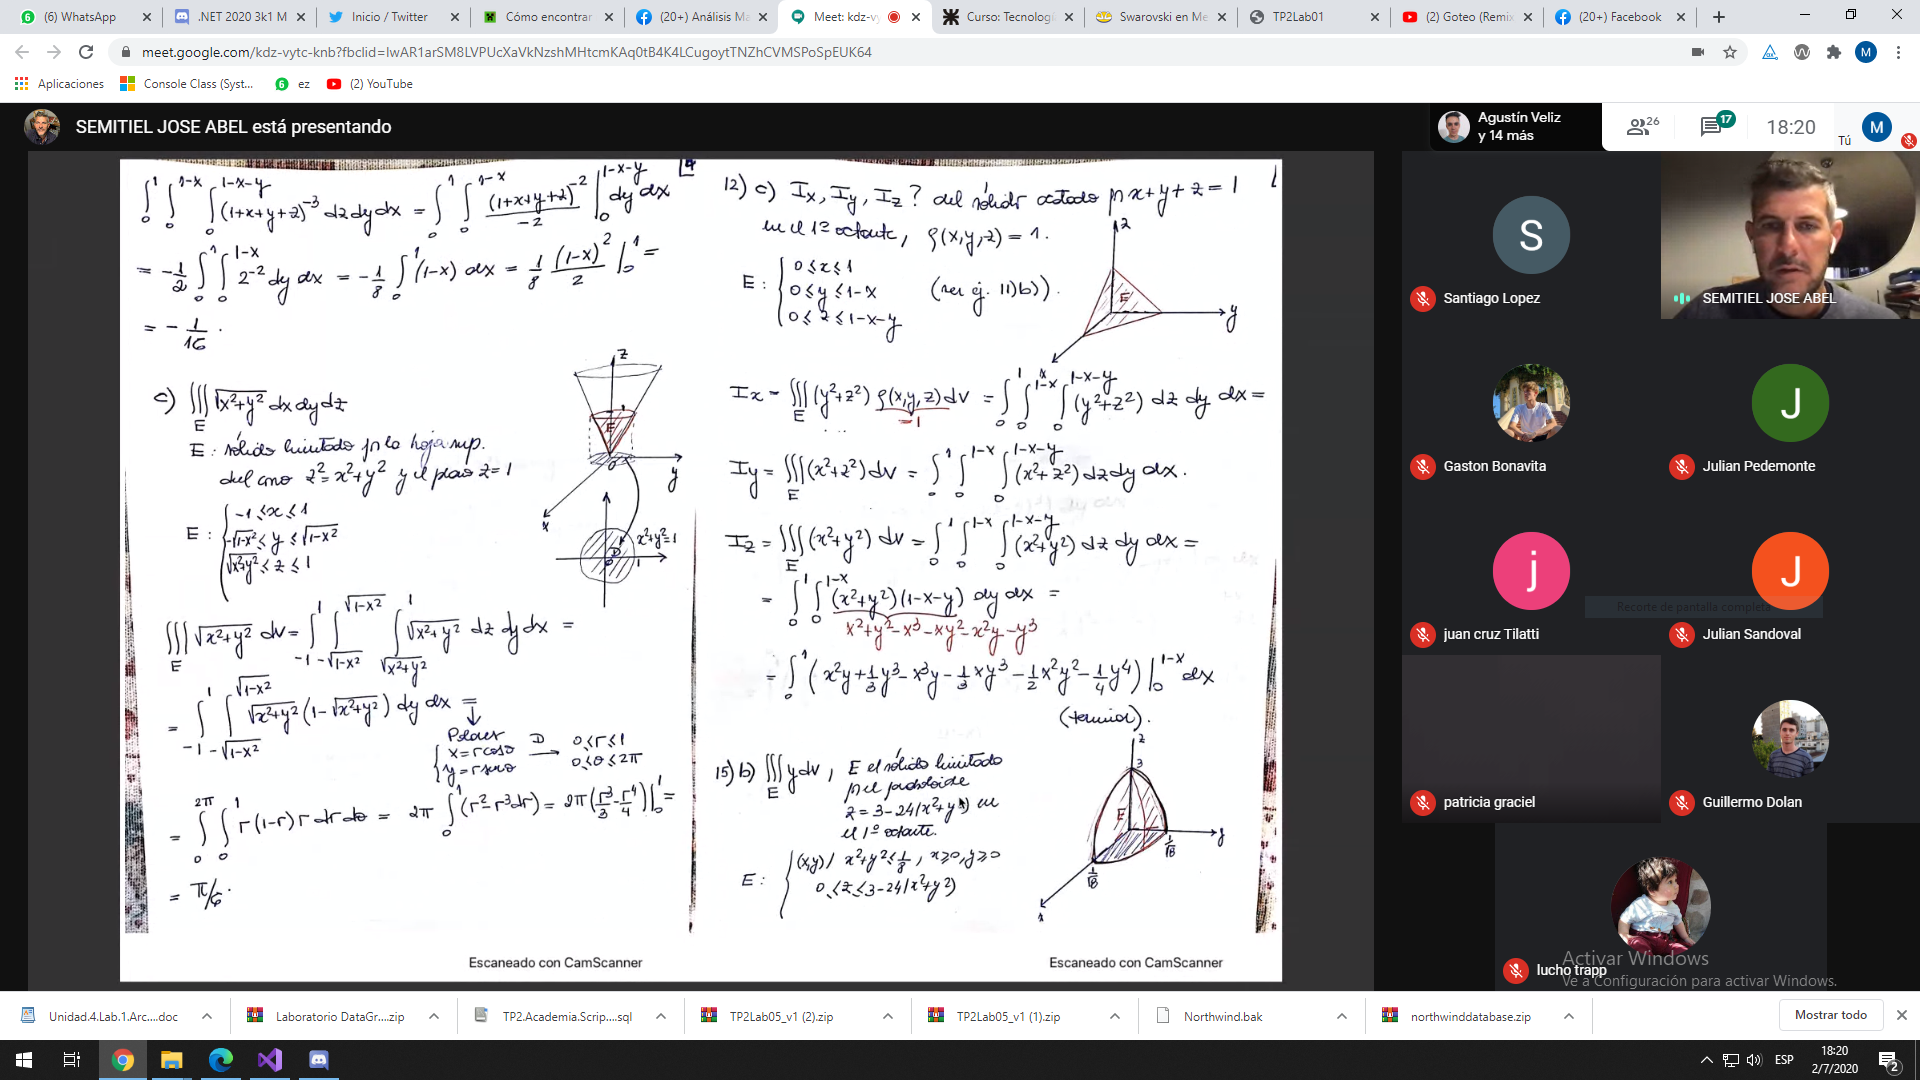 (6) WhatsApp
.NET 2020 3k1 M
Inicio / Twitter
Cómo encontrar
(20+) Análisis Ma
Meet: kdz-vy
Curso: Tecnologí
Swarovski en Me
TP2Lab01
(2) Goteo (Remix
(20+) Facebook
meet.google.com/kdz-vytc-knb?fbclid=IwAR1arSM8LVPUcXaVkNzshMHtcmKAq0tB4K4LCugoytTNZhCVMSPoSpEUK64
M
Aplicaciones
Console Class (Syst...
ez
(2) YouTube
SEMITIEL JOSE ABEL está presentando
Agustín Veliz
y 14 más
26
17
18:20
Tú
M
∫₀¹ ∫₀^{1-x} ∫₀^{1-x-y} (1+x+y+z)^{-3} dz dy dx = ∫₀¹ ∫₀^{1-x} (1+x+y+z)^{-2}/-2 |₀^{1-x-y} dy dx
= -1/2 ∫₀¹ ∫₀^{1-x} 2^{-2} dy dx = -1/8 ∫₀¹ (1-x) dx = 1/8 (1-x)²/2 |₀¹ =
= -1/16.
c) ∭_E √(x²+y²) dx dy dz
E: sólido limitado por la hoja sup.
del cono z²=x²+y² y el plano z=1
E: { -1≤x≤1
-√(1-x²) ≤ y ≤ √(1-x²)
√(x²+y²) ≤ z ≤ 1
z
1
E
0
y
x
x²+y²=1
D
1
∭_E √(x²+y²) dV = ∫₋₁¹ ∫_{-√(1-x²)}^{√(1-x²)} ∫_{√(x²+y²)}^1 √(x²+y²) dz dy dx =
= ∫₋₁¹ ∫_{-√(1-x²)}^{√(1-x²)} √(x²+y²) (1-√(x²+y²)) dy dx =
Polares
{ x=r cosθ D → 0≤r≤1
y=r senθ 0≤θ≤2π
= ∫₀^{2π} ∫₀¹ r(1-r) r dr dθ = 2π ∫₀¹ (r²-r³dr) = 2π (r³/3 - r⁴/4) |₀¹ =
= π/6.
12) c) Ix, Iy, Iz? del sólido acotado p/ x+y+z=1
en el 1º octante, ρ(x,y,z)=1.
E: { 0≤x≤1
0≤y≤1-x (ver ej. 11)b)).
0≤z≤1-x-y
z
E
y
x
Ix = ∭_E (y²+z²) ρ(x,y,z) dV = ∫₀¹ ∫₀^{1-x} ∫₀^{1-x-y} (y²+z²) dz dy dx =
=1
Iy = ∭_E (x²+z²) dV = ∫₀¹ ∫₀^{1-x} ∫₀^{1-x-y} (x²+z²) dz dy dx.
Iz = ∭_E (x²+y²) dV = ∫₀¹ ∫₀^{1-x} ∫₀^{1-x-y} (x²+y²) dz dy dx =
= ∫₀¹ ∫₀^{1-x} (x²+y²)(1-x-y) dy dx =
x²+y²-x³-xy²-x²y-y³
= ∫₀¹ (x²y + 1/3 y³ - x³y - 1/3 xy³ - 1/2 x²y² - 1/4 y⁴) |₀^{1-x} dx
(terminar).
15) b) ∭_E y dV, E el sólido limitado
p/ el paraboloide
z=3-24(x²+y²) en
el 1º octante.
E: { (x,y)/ x²+y²≤1/8, x≥0, y≥0
0≤z≤3-24(x²+y²)
z
3
E
y
1/√8
1/√8
x
Escaneado con CamScanner
Escaneado con CamScanner
S
Santiago Lopez
SEMITIEL JOSE ABEL
Gaston Bonavita
J
Julian Pedemonte
j
juan cruz Tilatti
J
Recorte de pantalla completa
Julian Sandoval
patricia graciel
Guillermo Dolan
lucho trapp
Activar Windows
Ve a Configuración para activar Windows.
Unidad.4.Lab.1.Arc....doc
Laboratorio DataGr....zip
TP2.Academia.Scrip....sql
TP2Lab05_v1 (2).zip
TP2Lab05_v1 (1).zip
Northwind.bak
northwinddatabase.zip
Mostrar todo
ESP
18:20
2/7/2020
2